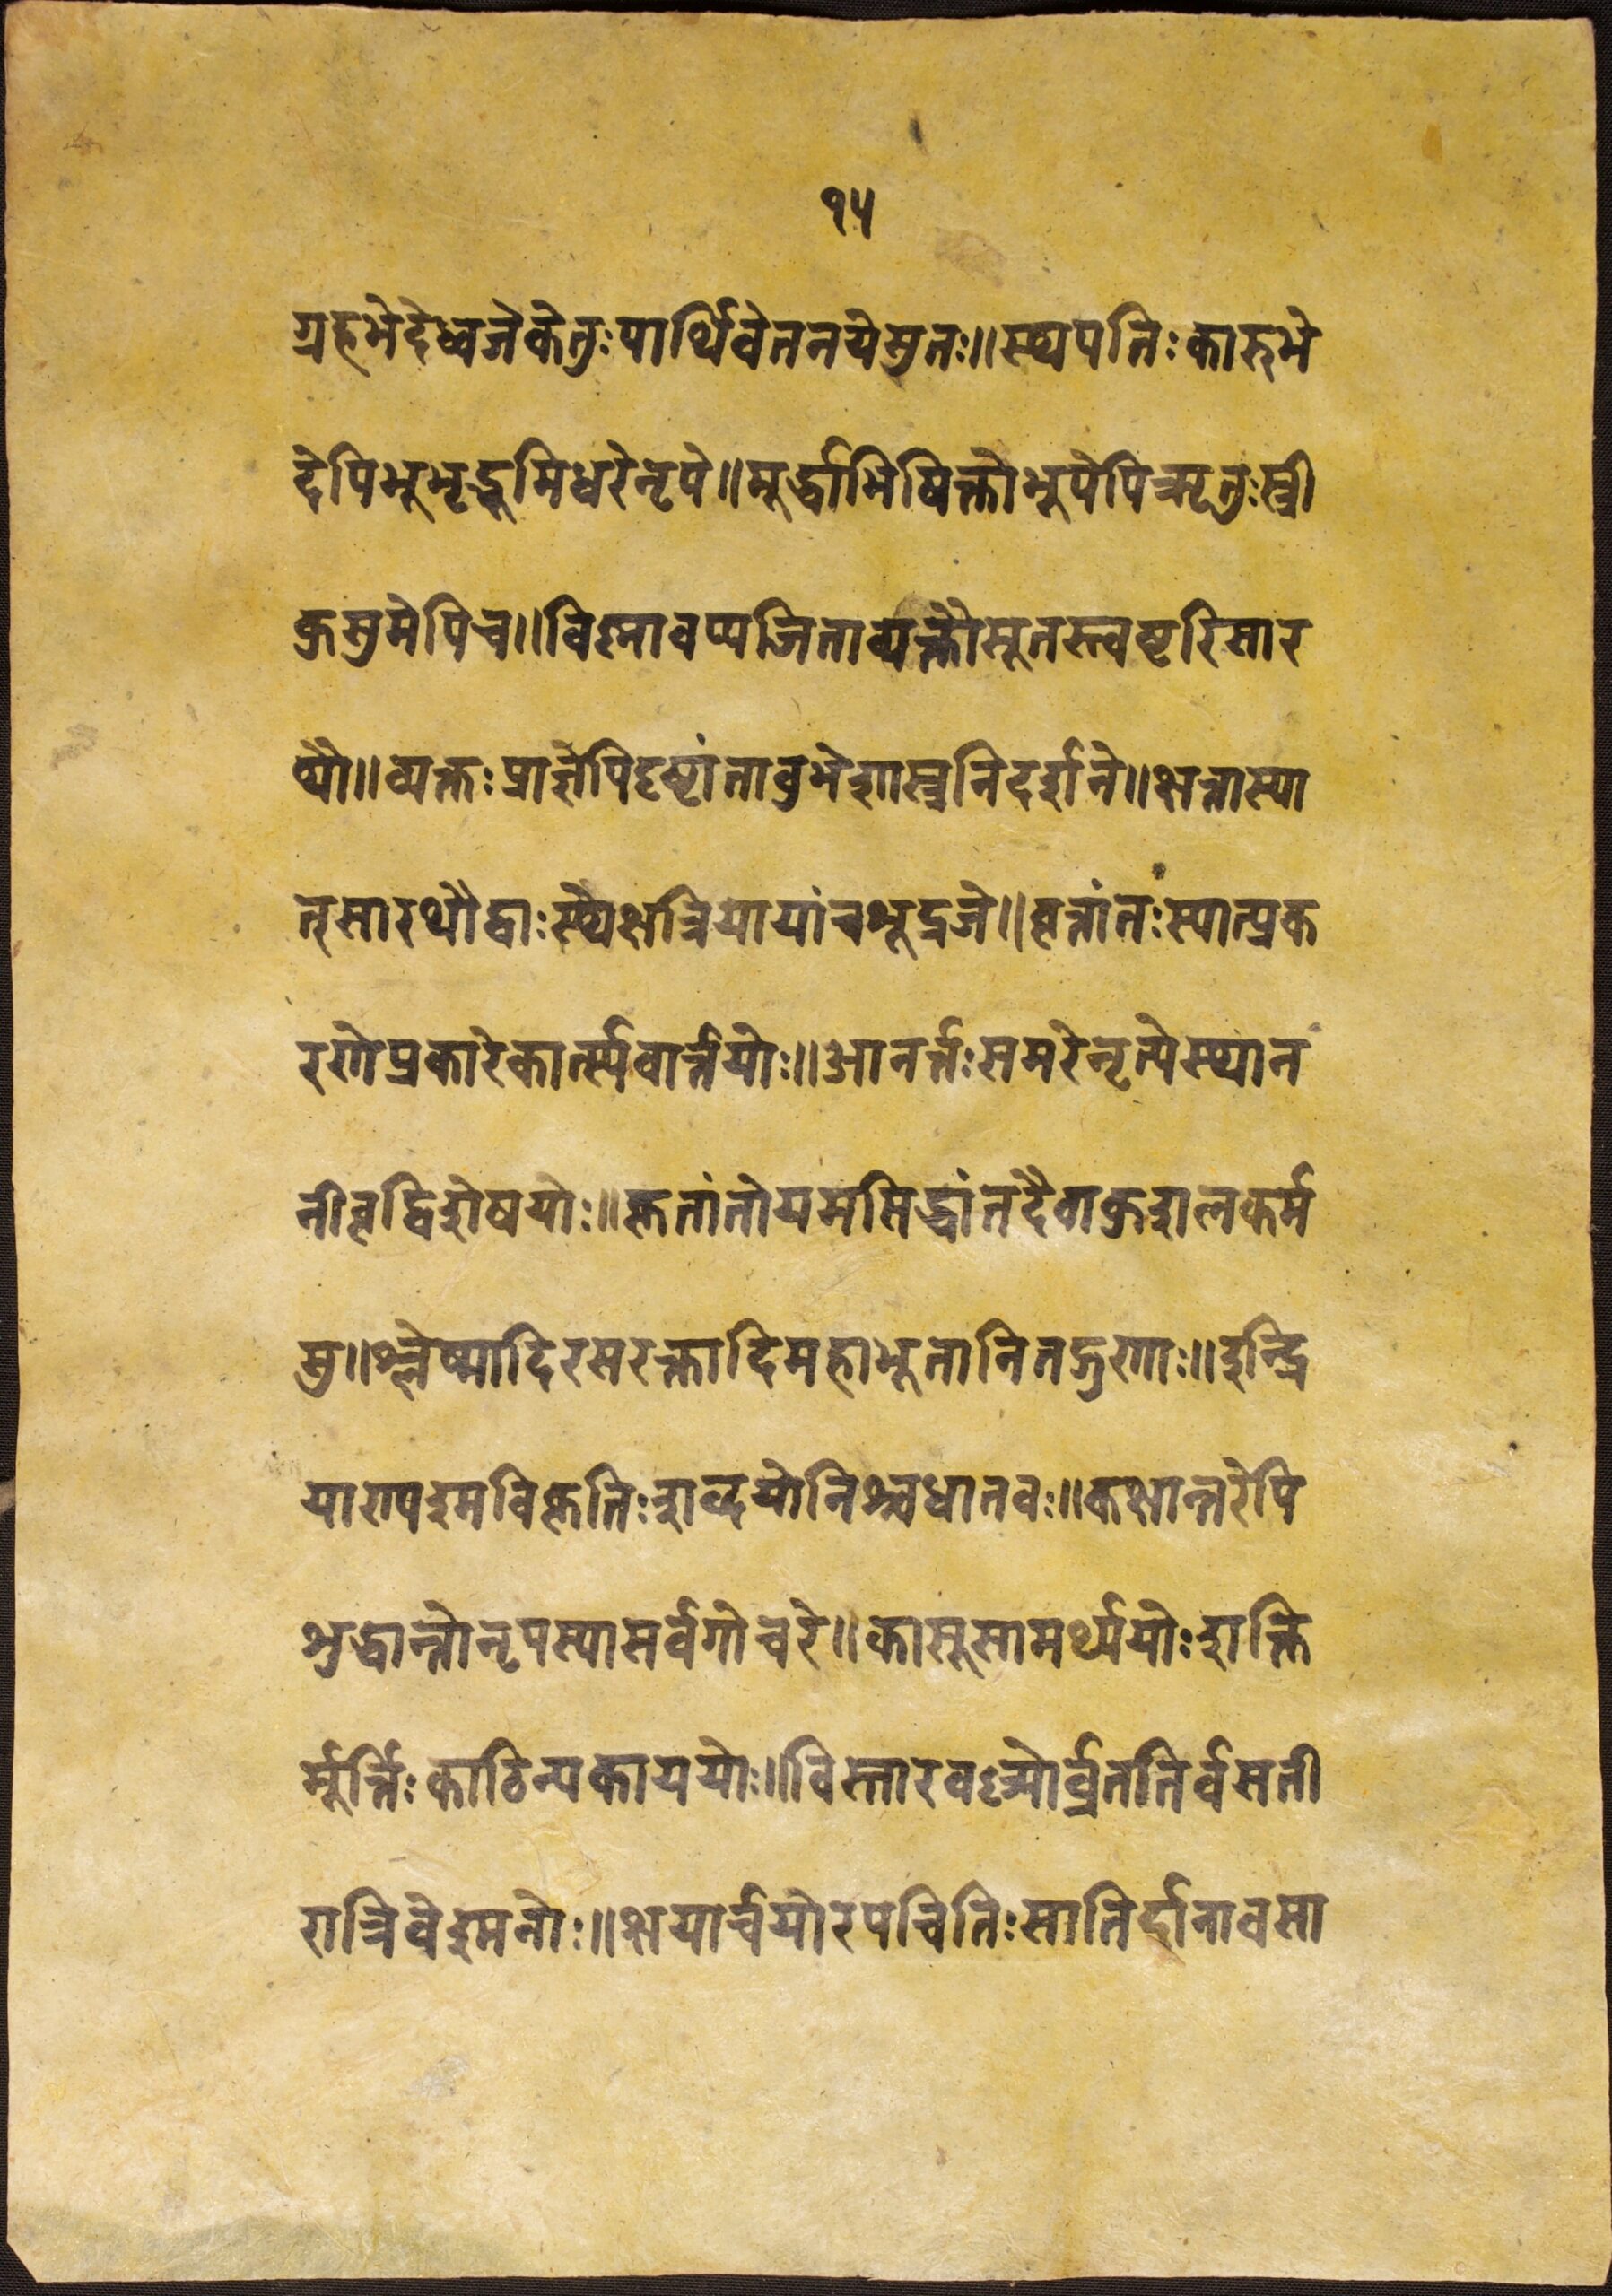 १५
ग्रहभेदेध्वजेकेतुःपार्थिवेतनयेसुतः॥स्थपतिःकारुभे
देपिभूभृद्भूमिधरेनृपे॥मूर्द्धाभिषिक्तोभूपेपिऋतुःस्त्री
कुसुमेपिच॥विष्णावप्यजिताव्यक्तौसूतस्त्वष्टरिसार
थौ॥व्यक्तःप्राज्ञेपिदृष्टांतावुभेशास्त्रनिदर्शने॥क्षत्तास्या
त्सारथौद्वाःस्थेक्षत्रियायांचशूद्रजे॥वृत्तांतःस्यात्प्रक
रणेप्रकारेकार्त्स्न्यवार्त्तयोः॥आनर्त्तःसमरेनृत्येस्थान
नीवृद्विशेषयोः॥कृतांतोयमसिद्धांतदैवाकुशलकर्म
सु॥श्लेष्मादिरसरक्तादिमहाभूतानितद्गुणाः॥इन्द्रि
याण्यश्मविकृतिःशब्दयोनिश्चधातवः॥कक्षान्तरेपि
शुद्धान्तोनृपस्यासर्वगोचरे॥कासूसामर्थ्ययोःशक्ति
र्मूर्त्तिःकाठिन्यकाययोः॥विस्तारवल्ल्योर्व्रततिर्वसती
रात्रिवेश्मनोः॥क्षयार्चयोरपचितिःसातिर्दानावसा